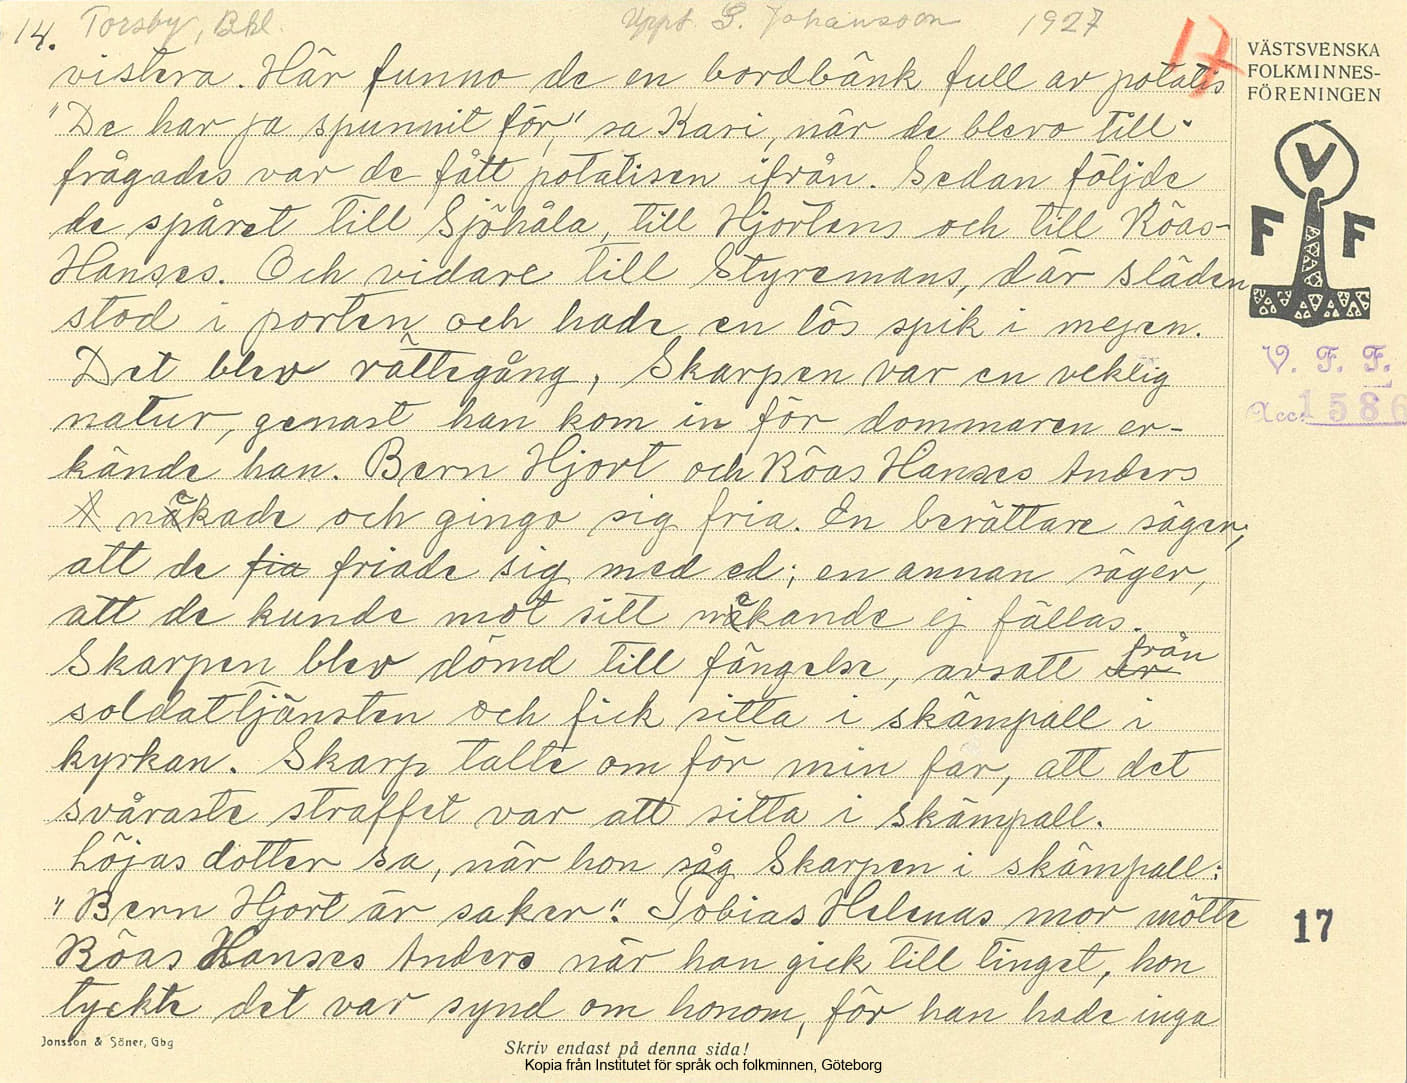 14. Torsby, Bhl. Uppt. G. Johansson 1927
17
VÄSTSVENSKA
FOLKMINNES-
FÖRENINGEN
V
F F
V. F. F.
Acc. 1586
vistera. Här funno de en bordbänk full av potatis
"De har ja spunnit för," sa Kari, när de blevo till-
frågades var de fått potatisen ifrån. Sedan följde
de spåret till Sjöhåla, till Hjortens och till Röas-
Hanses. Och vidare till Styremans, där släden
stod i porten och hade en lös spik i mejen.
Det blev rättegång, Skarpen var en veklig
natur, genast han kom in för dommaren er-
kände han. Bern Hjort och Röas Hanses Anders
nekade och gingo sig fria. En berättare säger,
att de fia friade sig med ed; en annan säger,
att de kunde mot sitt nekande ej fällas.
Skarpen blev dömd till fängelse, avsatt från
soldattjänsten och fick sitta i skämpall i
kyrkan. Skarp talte om för min far, att det
svåraste straffet var att sitta i skämpall.
Löjas dotter sa, när hon såg Skarpen i skämpall:
"Bern Hjort är saker". Tobias Helenas mor mötte
Röas Hanses Anders när han gick till tinget, hon
tyckte det var synd om honom, för han hade inga
17
Jonsson & Söner, Gbg
Skriv endast på denna sida!
Kopia från Institutet för språk och folkminnen, Göteborg